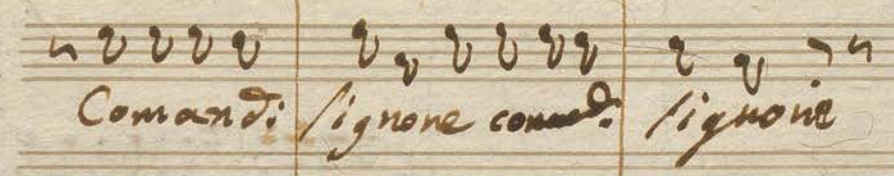 Comandi signone comandi signone